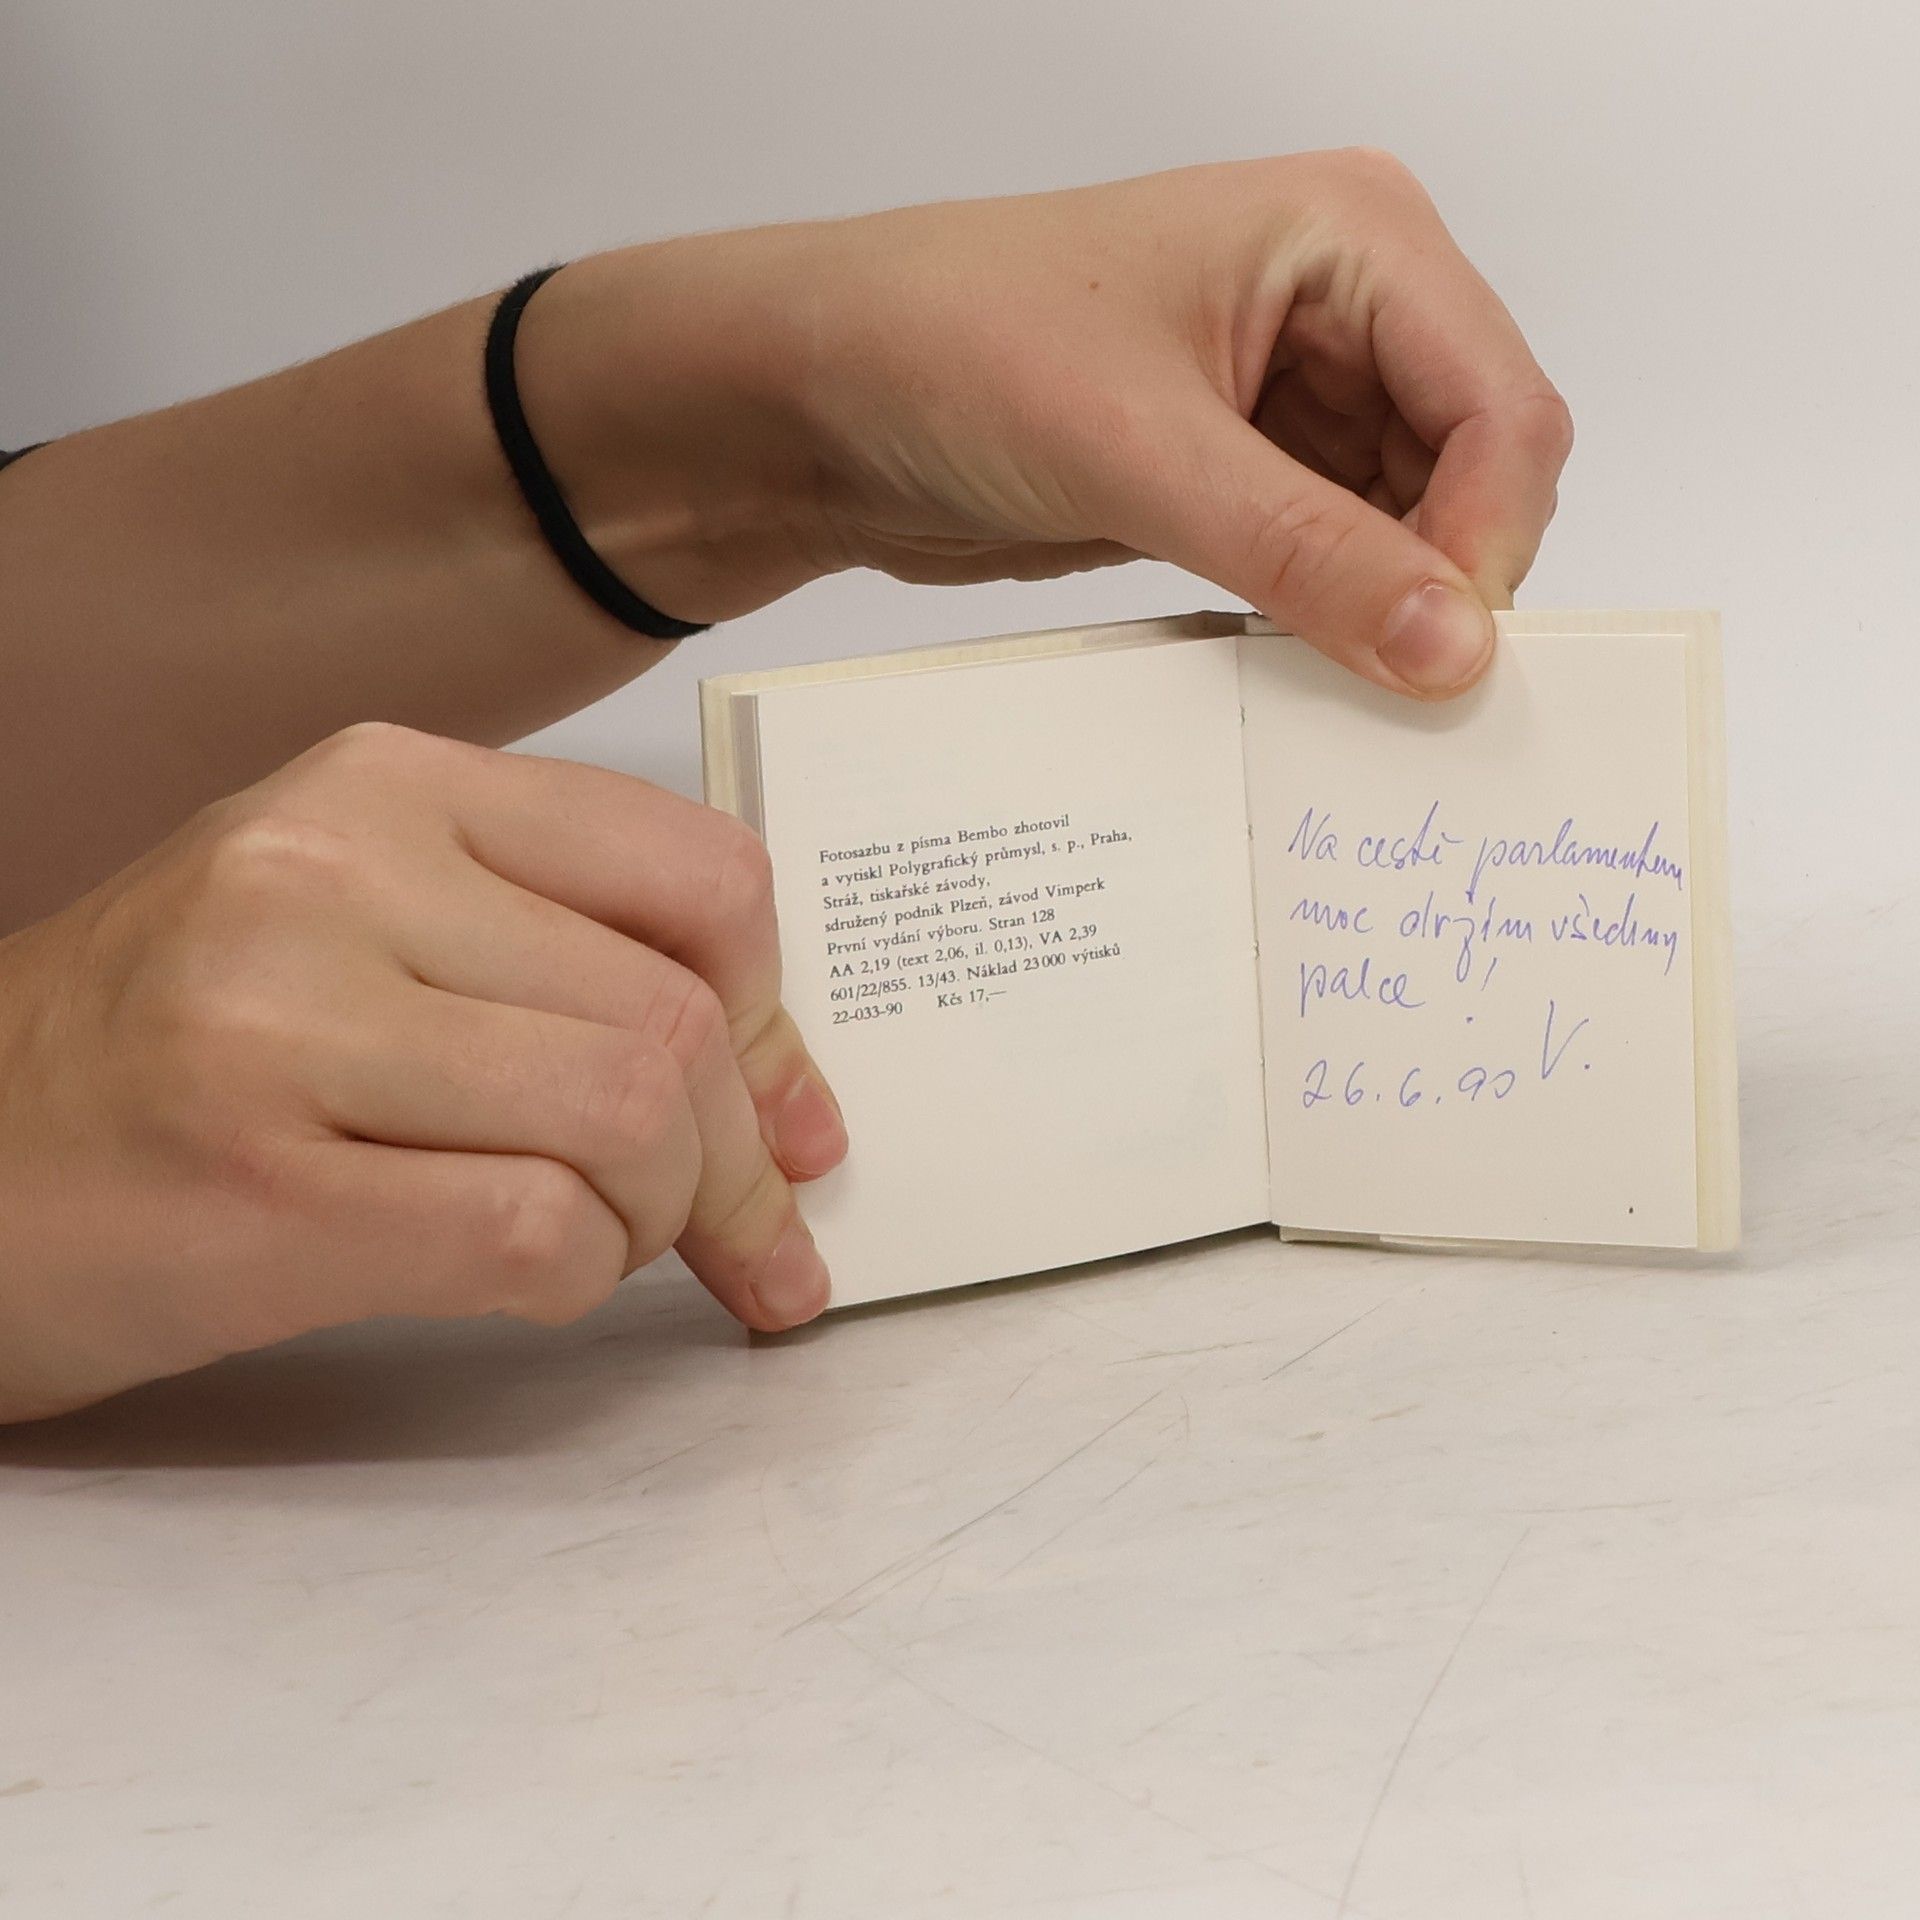 Fotosazbu z písma Bembo zhotovil
a vytiskl Polygrafický průmysl, s. p., Praha,
Stráž, tiskařské závody,
sdružený podnik Plzeň, závod Vimperk
První vydání výboru. Stran 128
AA 2,19 (text 2,06, il. 0,13), VA 2,39
601/22/855. 13/43. Náklad 23 000 výtisků
22-033-90 Kčs 17,—
Na cestě parlamentem
moc držím všechny
palce !
V.
26.6.90